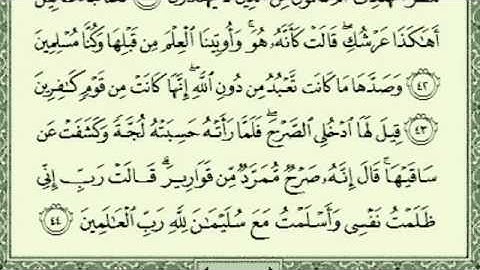 أَهَـٰكَذَا عَرْشُكِ ۖ قَالَتْ كَأَنَّهُۥ هُوَ ۚ وَأُوتِينَا ٱلْعِلْمَ مِن قَبْلِهَا وَكُنَّا مُسْلِمِينَ
﴿٤٢﴾ وَصَدَّهَا مَا كَانَت تَّعْبُدُ مِن دُونِ ٱللَّهِ ۖ إِنَّهَا كَانَتْ مِن قَوْمٍ كَـٰفِرِينَ
﴿٤٣﴾ قِيلَ لَهَا ٱدْخُلِى ٱلصَّرْحَ ۖ فَلَمَّا رَأَتْهُ حَسِبَتْهُ لُجَّةً وَكَشَفَتْ عَن
سَاقَيْهَا ۚ قَالَ إِنَّهُۥ صَرْحٌ مُّمَرَّدٌ مِّن قَوَارِيرَ ۗ قَالَتْ رَبِّ إِنِّى
ظَلَمْتُ نَفْسِى وَأَسْلَمْتُ مَعَ سُلَيْمَـٰنَ لِلَّهِ رَبِّ ٱلْعَـٰلَمِينَ ﴿٤٤﴾